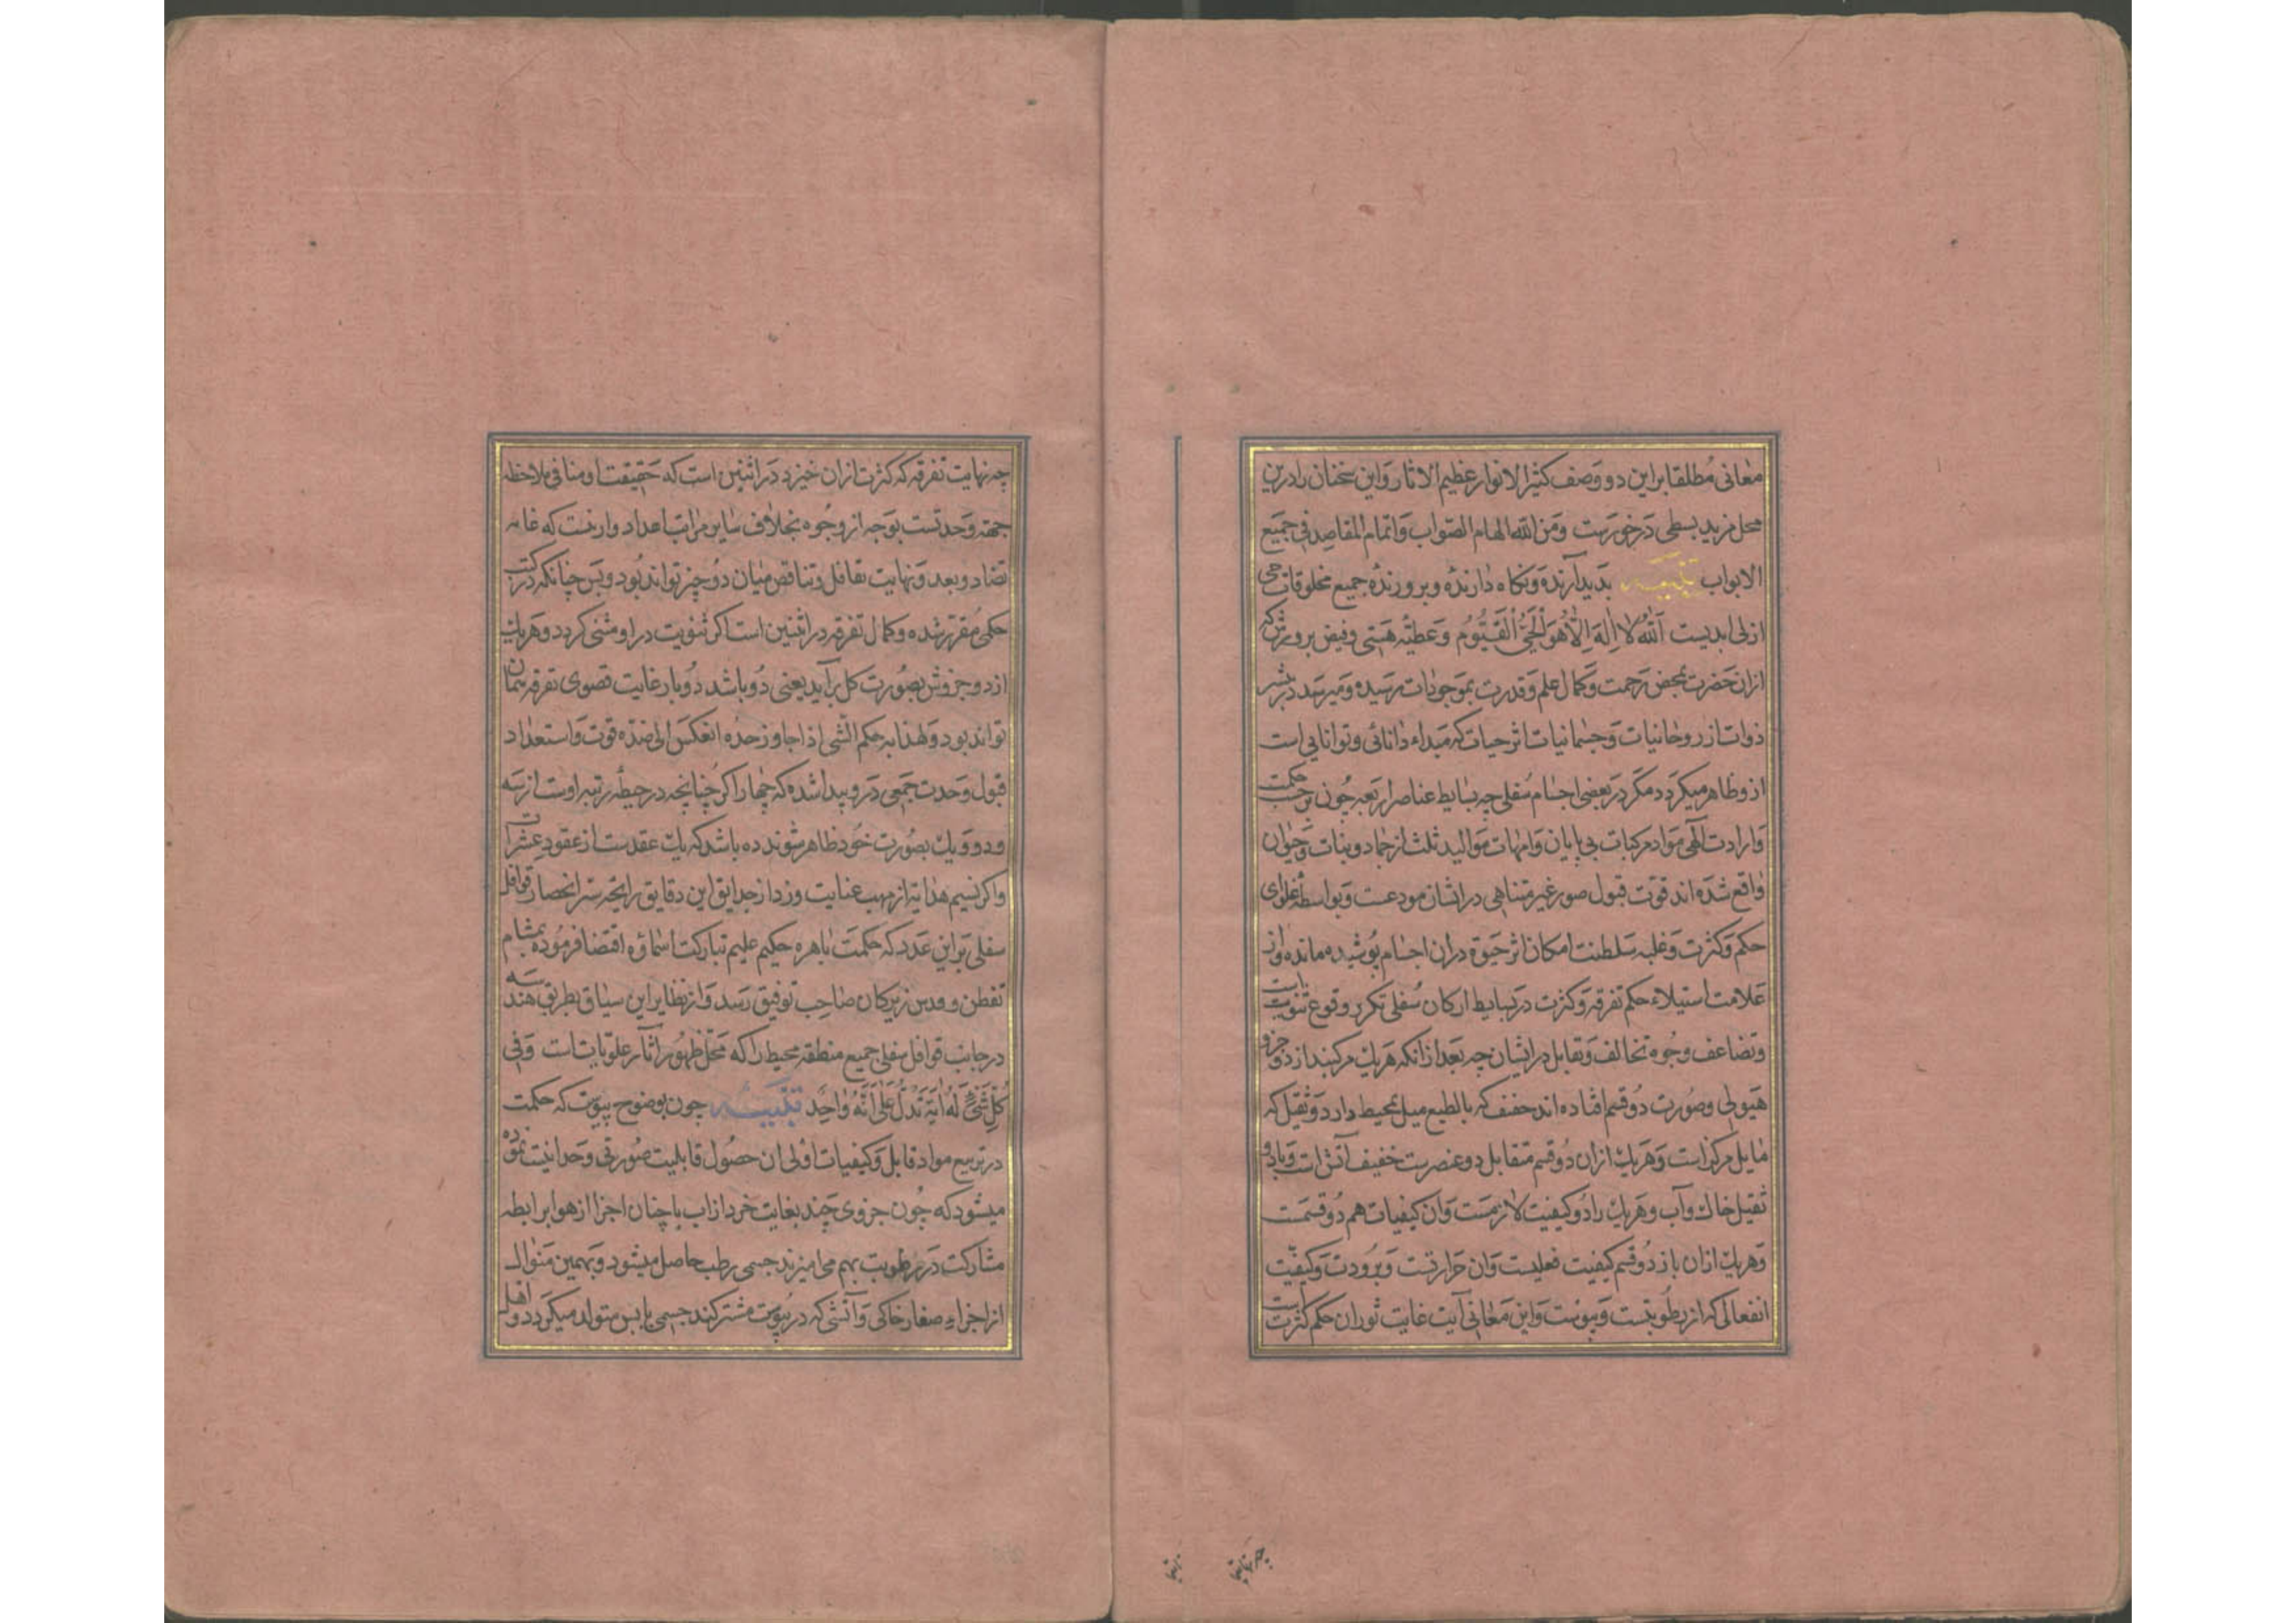 معانی مطلقا براین دو وصف کثیر الانوار عظیم الاثار واین سخنان رادرین
محل مزید بسطی درخورست ومن الله الهام الصواب واتمام المقاصد فی جمیع
الابواب تنبیه بدیدآرنده ونکاه دارنده وبرورنده جمیع مخلوقات حی
ازلی ابدیست الله لا اله الا هو الحی القیوم وعطیه هستی وفیض برورش که
ازان حضرت بمحض رحمت وکمال علم وقدرت بموجودات رسیده ومیرسد در بیشتر
ذوات از روحانیات وجسمانیات اثر حیات که مبداء دانائی وتوانایی است
ازو ظاهر میکردد مکر در بعضی اجسام سفلی چه بسایط عناصر اربعه چون بر حسب حکمت
وارادت الهی مواد مرکبات بی پایان وامهات موالید ثلث از جماد ونبات وحیوان
واقع شده اند قوت قبول صور غیر متناهی در ایشان مودعست وبواسطه
حکم وکثرت وغلبه سلطنت امکان اثر حیوة دران اجسام پوشیده مانده واز
علامت استیلاء حکم تفرقه وکثرت در بسایط ارکان سفلی تکرر وقوع ثنویت است
وتضاعف وجوه تخالف وتقابل در ایشان چه بعد ازانکه هریک مرکبند از دو جزو
هیولی وصورت دو قسم افتاده اند خفیف که بالطبع میل بمحیط دارد وثقیل که
مایل مرکز است وهریک ازان دو قسم متقابل دو عنصرست خفیف آتش است وباد و
ثقیل خاک وآب وهریک را دو کیفیت لازمست وان کیفیات هم دو قسمست
وهریک ازان باز دو قسم کیفیت فعلیست وان حرارتست وبرودت وکیفیت
انفعالی که ان رطوبتست ویبوست واین معانی آیت غایت ثوران حکم کثرت است
چه نهایت تفرقه که کثرت ازان خیزد در اثنین است که حقیقت او منافی ملاحظه
جهة وحدتست بوجه از وجوه بخلاف سایر مراتب اعداد وازینست که غایه
تضاد وبعد ونهایت تقافل وتناقض میان دو چیز تواند بود وبس چنانکه در کتب
حکمی مقرر شده وکمال تفرقه در اثنین است اکر ثنویت در او مثنی کردد وهریک
از دو جزوش بصورت کل برآید یعنی دو باشد دو بار غایت قصوی تفرقه همان
تواند بود ولهذا به حکم الشی اذا جاوز حده انعکس الی ضده قوت واستعداد
قبول وحدت جمعی درو پیدا شده که چهار اکر چنانچه در حیطه رتبه اوست از سه
ودو ویک بصورت خود ظاهر شوند ده باشد که یک عقدست از عقود عشرات
واکر نسیم هدایة از مهب عنایت وزد از حدایق این دقایق رایحه سر انحصار قوافل
سفلی بر این عدد که حکمت باهره حکیم علیم تبارکت اسماؤه اقتضا فرموده بمشام
تفطن زیرکان صاحب توفیق رسد واز نظایر این سیاق بطریق هندسه
در جانب قوافل سفلی جمیع منطقه محیط را که محل ظهور آثار علویات است وفی
کل شیء له ایة تدل علی انه واحد تنبیه چون بوضوح پیوست که حکمت
در تربیع مواد قابل وکیفیات اولی ان حصول قابلیت صورتی وحدانیت نموده
میشود که چون جزوی چند بغایت خرد از اب با چنان اجزا از هوا برابطه
مشارکت در رطوبت بهم می امیزند جسمی رطب حاصل میشود وبهمین منوال
از اجزاء صغار خاکی وآتشی که در یبوست مشترکند جسمی یابس متولد میکردد واهل